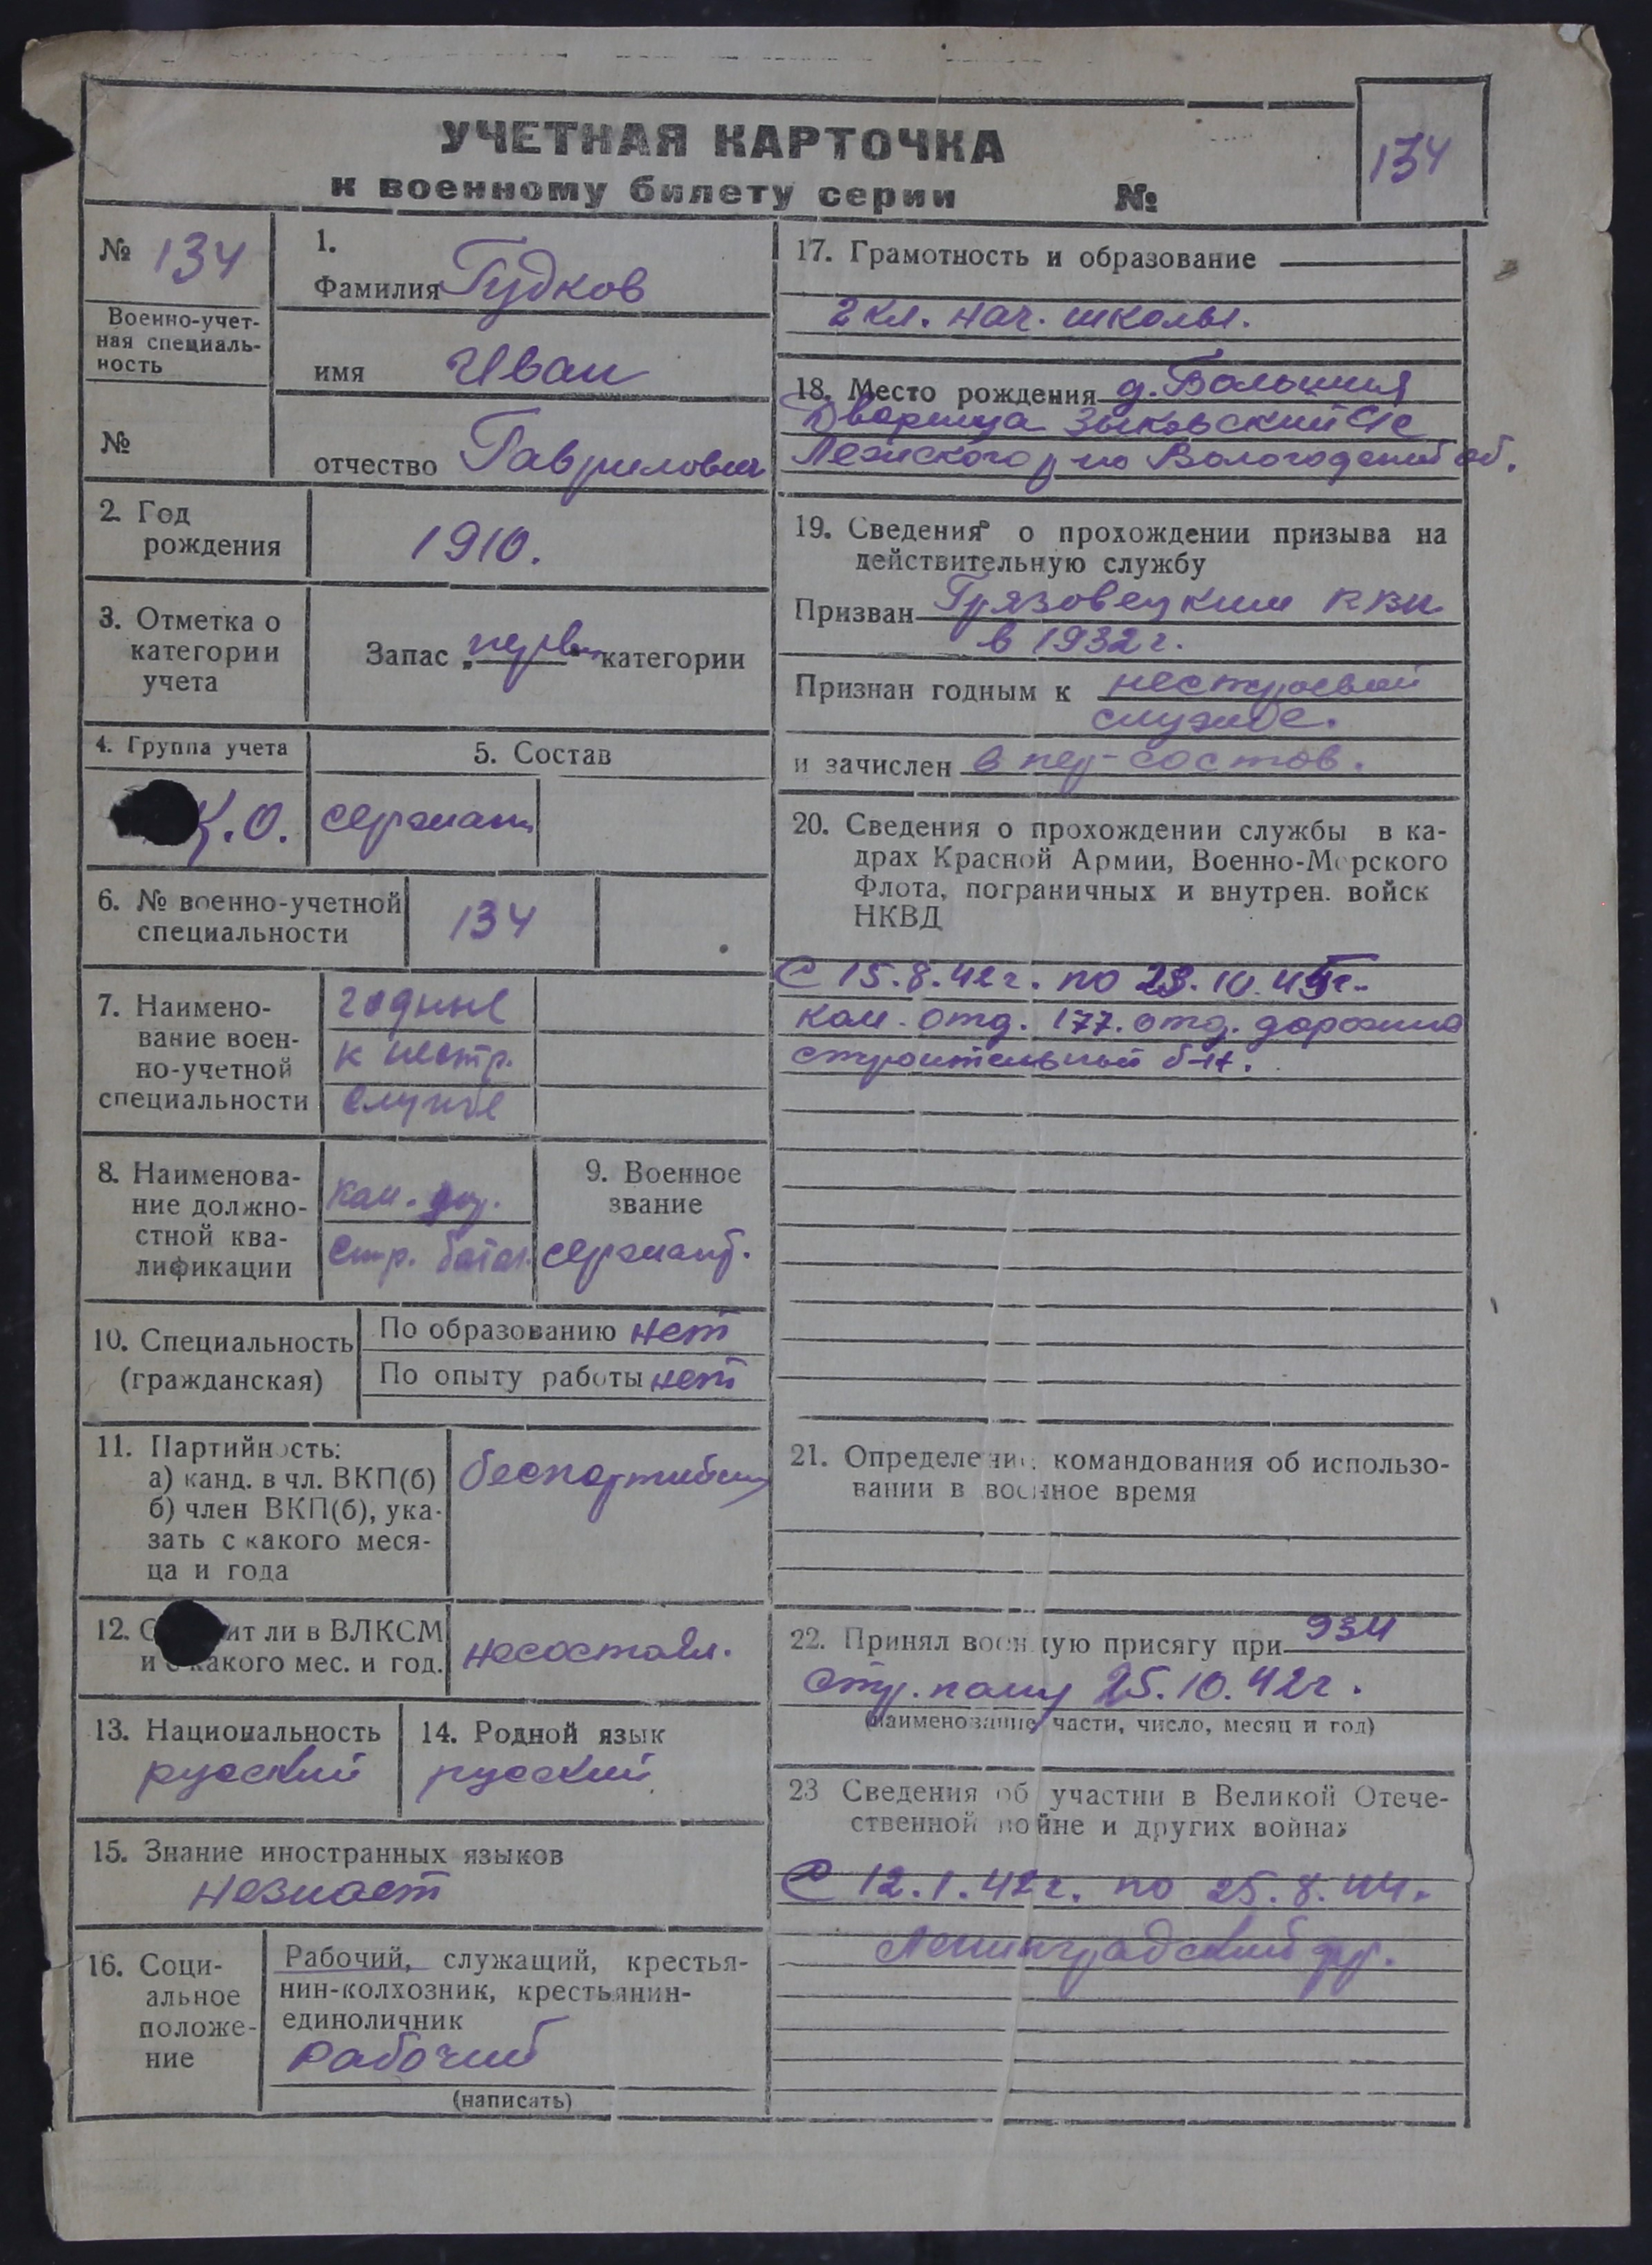 УЧЕТНАЯ КАРТОЧКА
к военному билету серии №
134
№ 134
Военно-учет-
ная специаль-
ность
№
1.
Фамилия Гудков
имя Иван
отчество Гаврилович
2. Год
рождения
1910.
3. Отметка о
категории
учета
Запас „первой“ категории
4. Группа учета
К.О.
5. Состав
сержант
6. № военно-учетной
специальности
134
7. Наимено-
вание воен-
но-учетной
специальности
годные
к нестр.
службе
8. Наименова-
ние должно-
стной ква-
лификации
ком.
стр. батал.
9. Военное
звание
сержант.
10. Специальность
(гражданская)
По образованию нет
По опыту работы нет
11. Партийность:
а) канд. в чл. ВКП(б)
б) член ВКП(б), ука-
зать с какого меся-
ца и года
беспартийный
12. С ит ли в ВЛКСМ
и с какого мес. и год.
несостоял.
13. Национальность
русский
14. Родной язык
русский
15. Знание иностранных языков
незнает
16. Соци-
альное
положе-
ние
Рабочий, служащий, крестья-
нин-колхозник, крестьянин-
единоличник
рабочий
(написать)
17. Грамотность и образование
2 кл. нач. школы.
18. Место рождения д. Большия
Дворища Зыковский с/с
Лежского р-на Вологодской об.
19. Сведения о прохождении призыва на
действительную службу
Призван Грязовецким РВК
в 1932 г.
Признан годным к нестроевой
службе.
и зачислен в пер-состав.
20. Сведения о прохождении службы в ка-
драх Красной Армии, Военно-Морского
Флота, пограничных и внутрен. войск
НКВД
С 15.8.42 г. по 23.10.45г.
ком. отд. 177. отд. дорожно
строительный б-н.
21. Определение командования об использо-
вании в военное время
22. Принял военную присягу при 934
стр. полку 25.10.42 г.
(наименование части, число, месяц и год)
23 Сведения об участии в Великой Отече-
ственной войне и других войнах
С 12.1.42 г. по 25.8.44г.
Ленинградский фр.